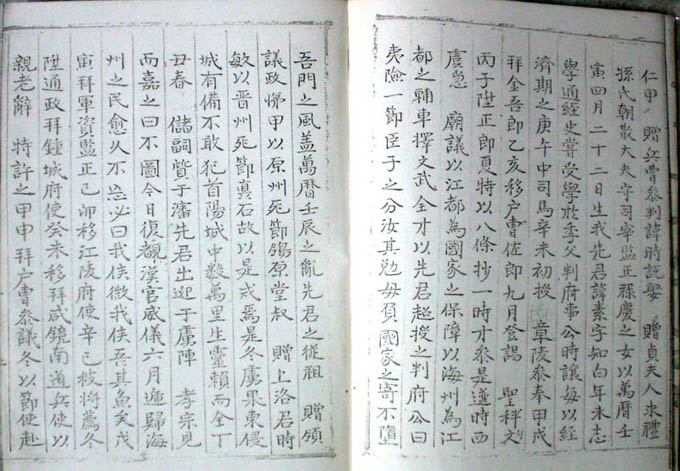 仁甲 贈兵曹參判諱時說娶 贈貞夫人永禮
孫氏朝散大夫守司宰監正祿慶之女以萬曆壬
寅四月二十二日生我先君諱素字知白年未志
學通經史嘗受學於季父判府事公時讓每以經
濟期之庚午中司馬辛未初授 章陵參奉甲戌
拜金吾郎乙亥移戶曹佐郎九月登謁 聖科文
丙子陞正郎夏特以八條抄一時才參是選時西
虞急 廟議以江都為國家之保障以海州為江
都之輔車擇文武全才以先君超授之判府公曰
夷險一節臣子之分汝其勉毋負 國家之寄不墮
吾門之風盖萬曆壬辰之亂先君之從祖 贈領
議政悌甲以原州死節殤原堂叔 贈上洛君時
敏以晋州死節眞石故以是戒焉是冬虜果東侵
城有備不敢犯首陽城中數萬里生靈賴而全丁
丑春 儲嗣質于瀋先君出迎于虜陣 孝宗見
而嘉之曰不圖今日復覩漢官威儀六月遞歸海
州之民愈久不忘必曰我侯微我侯吾其魚矣戊
寅拜軍資監正己卯移江陵府使辛巳被將薦冬
陞通政拜鍾城府使癸未移拜咸鏡南道兵使以
親老辭 特許之甲申拜戶曹參議冬以節使赴